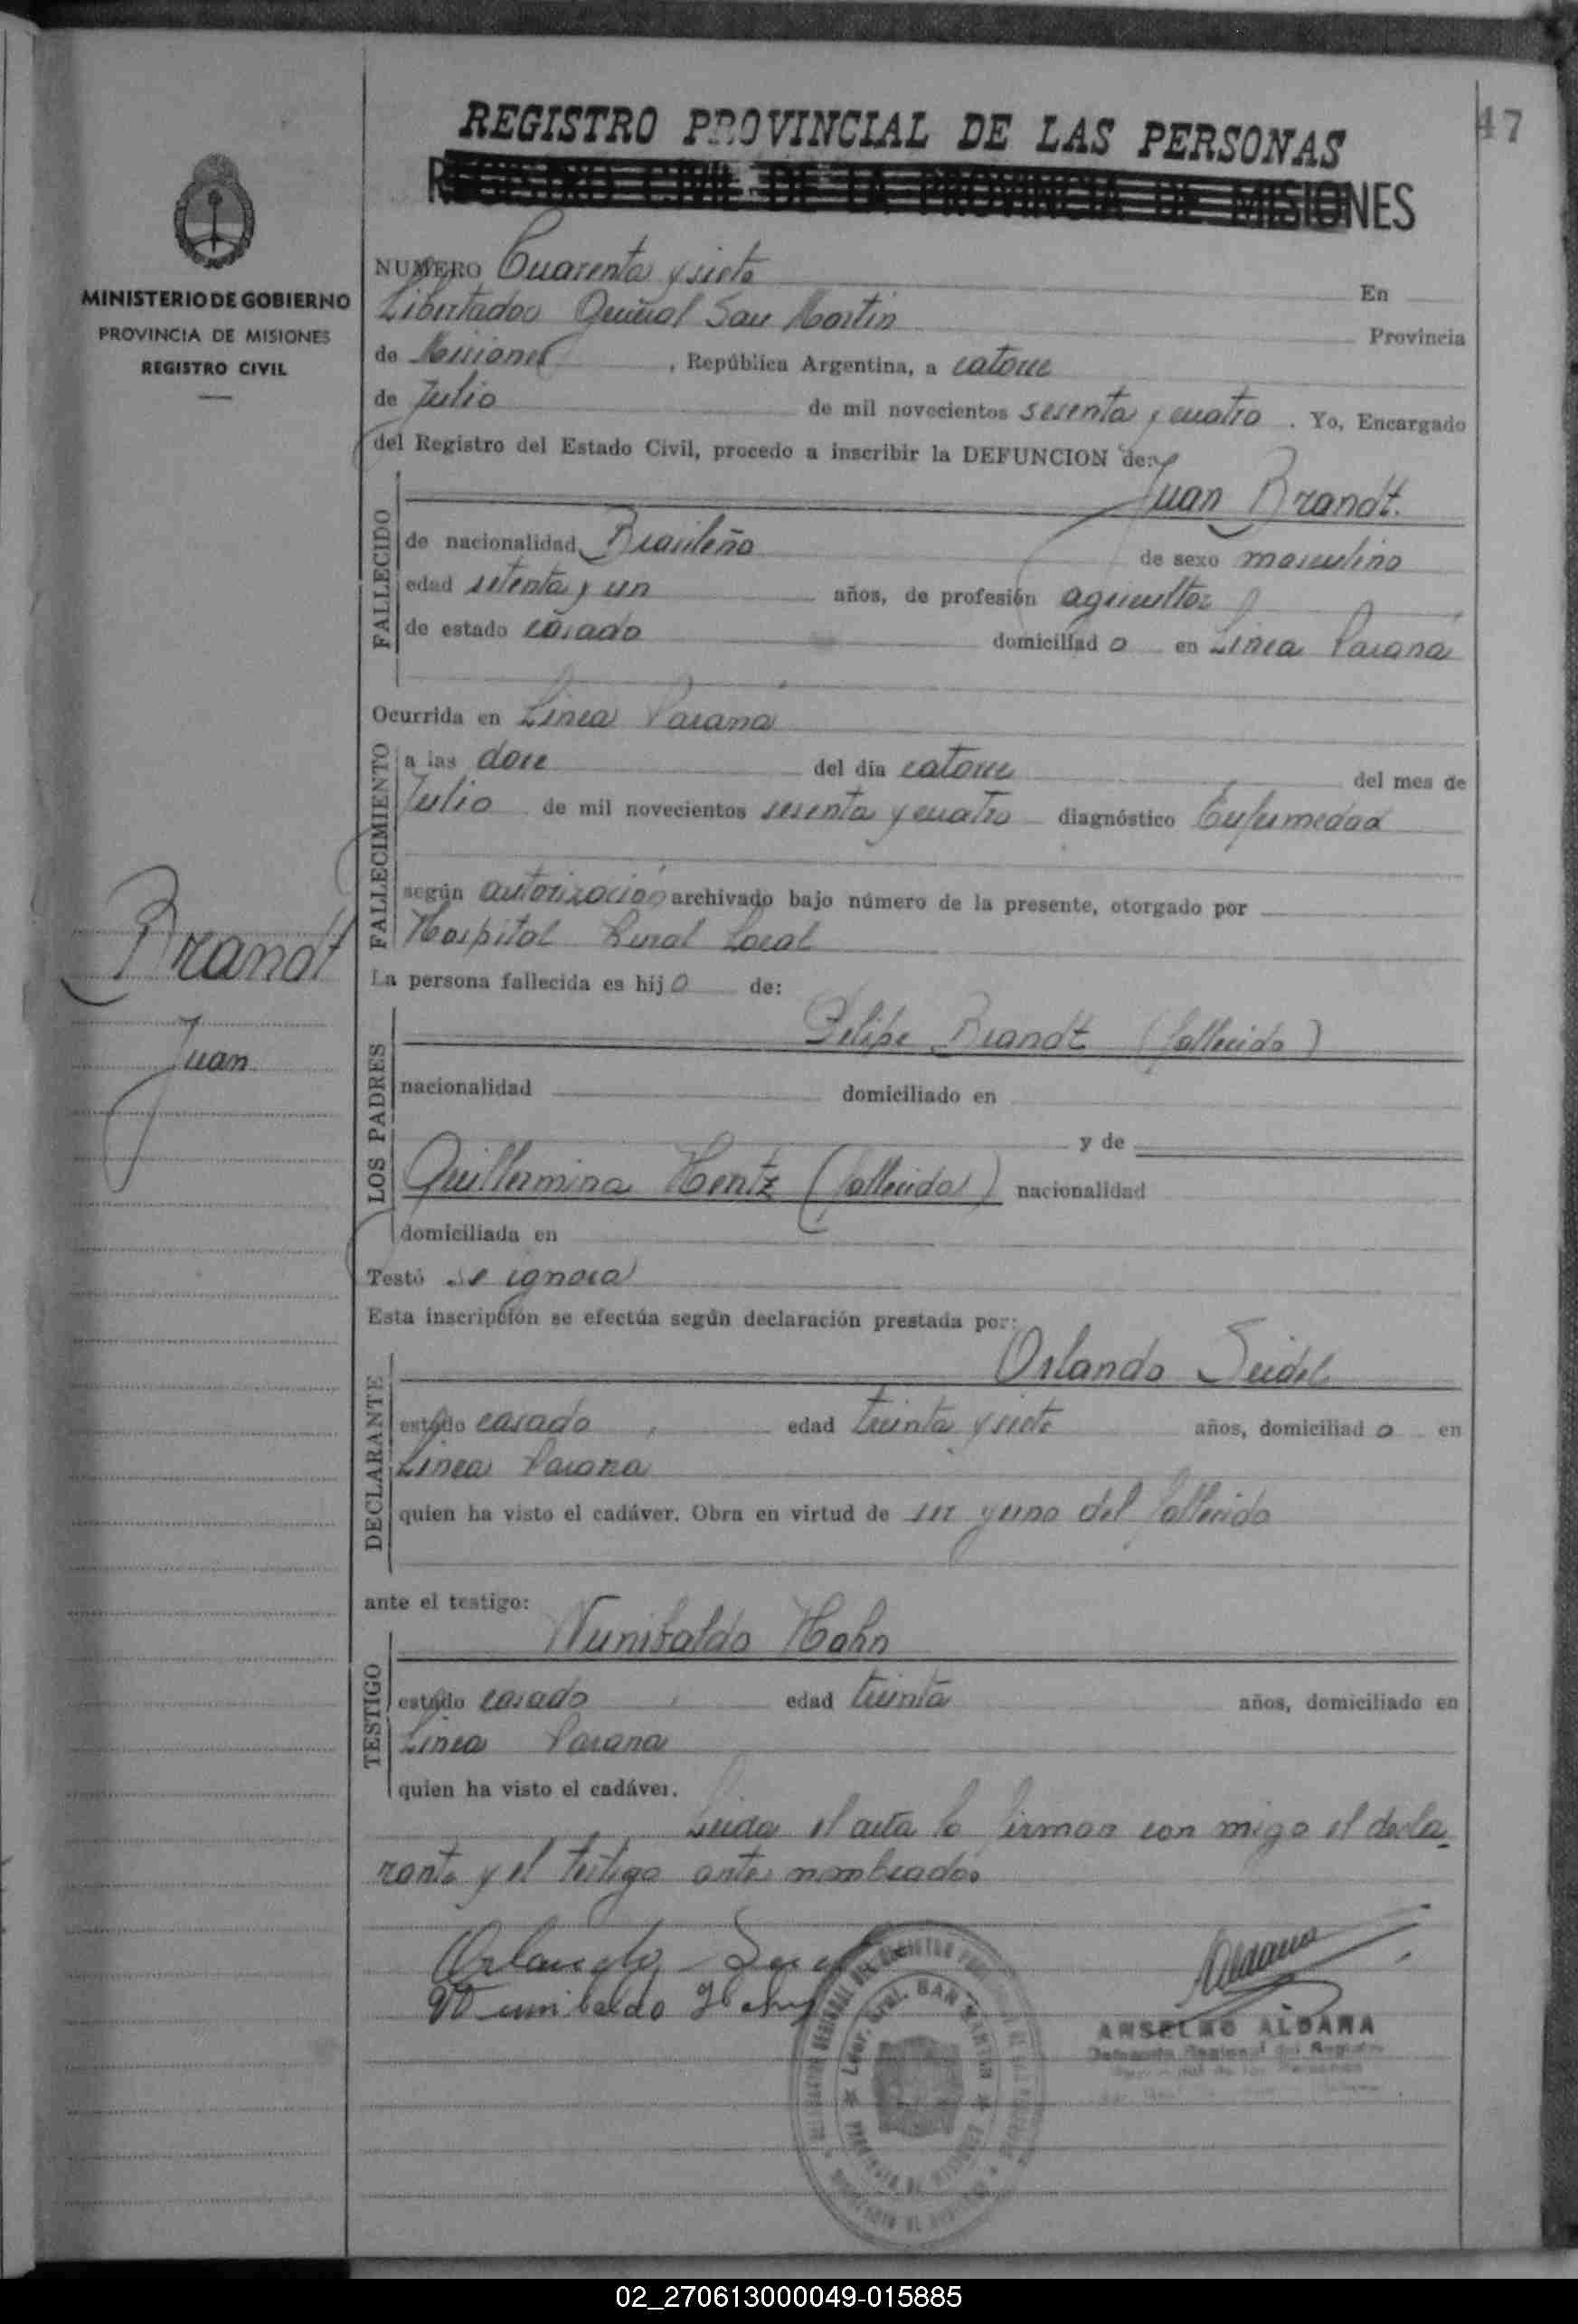 47
REGISTRO PROVINCIAL DE LAS PERSONAS
REGISTRO CIVIL DE LA PROVINCIA DE MISIONES
MINISTERIO DE GOBIERNO
PROVINCIA DE MISIONES
REGISTRO CIVIL
Brandt
Juan
NUMERO Cuarenta y siete En
Libertador General San Martin Provincia
de Misiones, República Argentina, a catorce
de Julio de mil novecientos sesenta y cuatro. Yo, Encargado
del Registro del Estado Civil, procedo a inscribir la DEFUNCION de:
FALLECIDO
Juan Brandt.
de nacionalidad Brasileño de sexo masculino
edad setenta y un años, de profesión agricultor
de estado casado domiciliad o en Linea Parana
Ocurrida en Linea Parana
FALLECIMIENTO
a las doce del día catorce del mes de
Julio de mil novecientos sesenta y cuatro diagnóstico Enfermedad
según autorización archivado bajo número de la presente, otorgado por
Hospital Rural Local
La persona fallecida es hij o de:
LOS PADRES
Felipe Brandt (fallecido)
nacionalidad domiciliado en
y de
Guillermina Hentz (fallecida) nacionalidad
domiciliada en
Testó se ignora
Esta inscripción se efectúa según declaración prestada por:
DECLARANTE
Orlando Seidel
estado casado, edad treinta y siete años, domiciliad o en
Linea Parana
quien ha visto el cadáver. Obra en virtud de ser yerno del fallecido
ante el testigo:
TESTIGO
Wunibaldo Hahn
estado casado, edad treinta años, domiciliado en
Linea Parana
quien ha visto el cadáver.
Leida el acta la firman con migo el decla-
rante y el testigo antes nombrados
Orlando Seidel
Wunibaldo Hahn
Aldana
ANSELMO ALDANA
Delegado Regional del Registro
Provincial de las Personas
Ldor. Gral. SAN MARTIN
PROVINCIA DE MISIONES
02_270613000049-015885